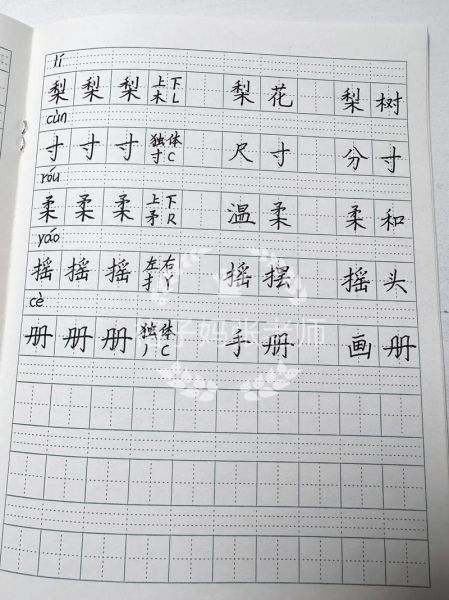 lí
梨 梨 梨 上下 木 L 梨花 梨树
cùn
寸 寸 寸 独体 寸 C 尺寸 分寸
róu
柔 柔 柔 上下 矛 R 温柔 柔和
yáo
摇 摇 摇 左右 扌 Y 摇摆 摇头
cè
册 册 册 独体 丿 C 手册 画册